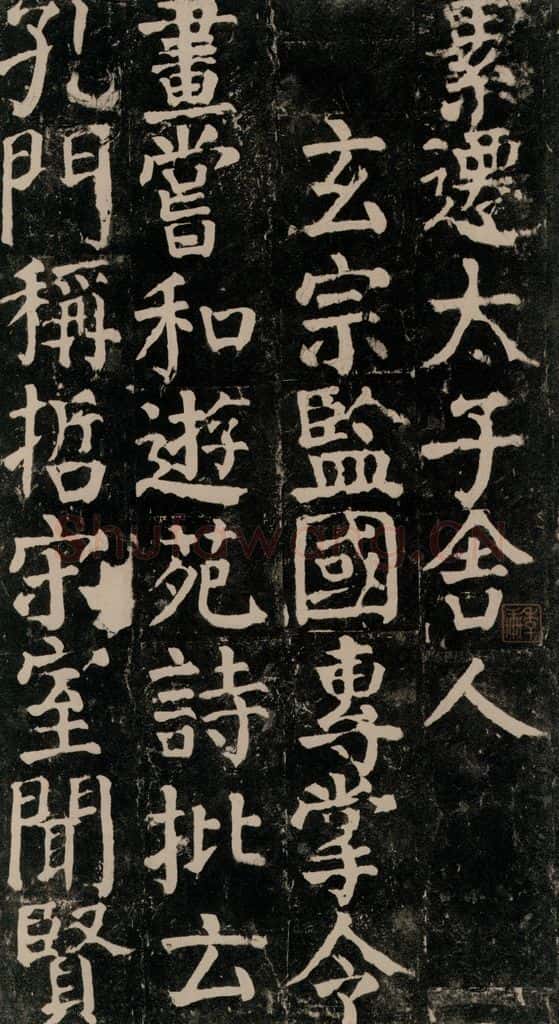 累遷太子舍人
玄宗監國專掌令
畫嘗和遊苑詩批云
孔門稱哲宋室聞賢
Shufawang.cn